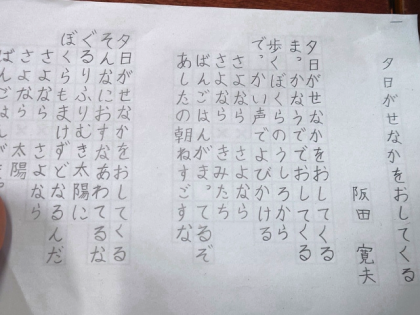 一
夕日がせなかをおしてくる
阪田 寛夫
夕日がせなかをおしてくる
まっかなうででおしてくる
歩くぼくらのうしろから
でっかい声でよびかける
さよなら さよなら
さよなら きみたち
ばんごはんがまってるぞ
あしたの朝ねすごすな
夕日がせなかをおしてくる
そんなにおすなあわてるな
ぐるりふりむき太陽に
ぼくらもまけずどなるんだ
さよなら さよなら
さよなら 太陽
ばんごはんが